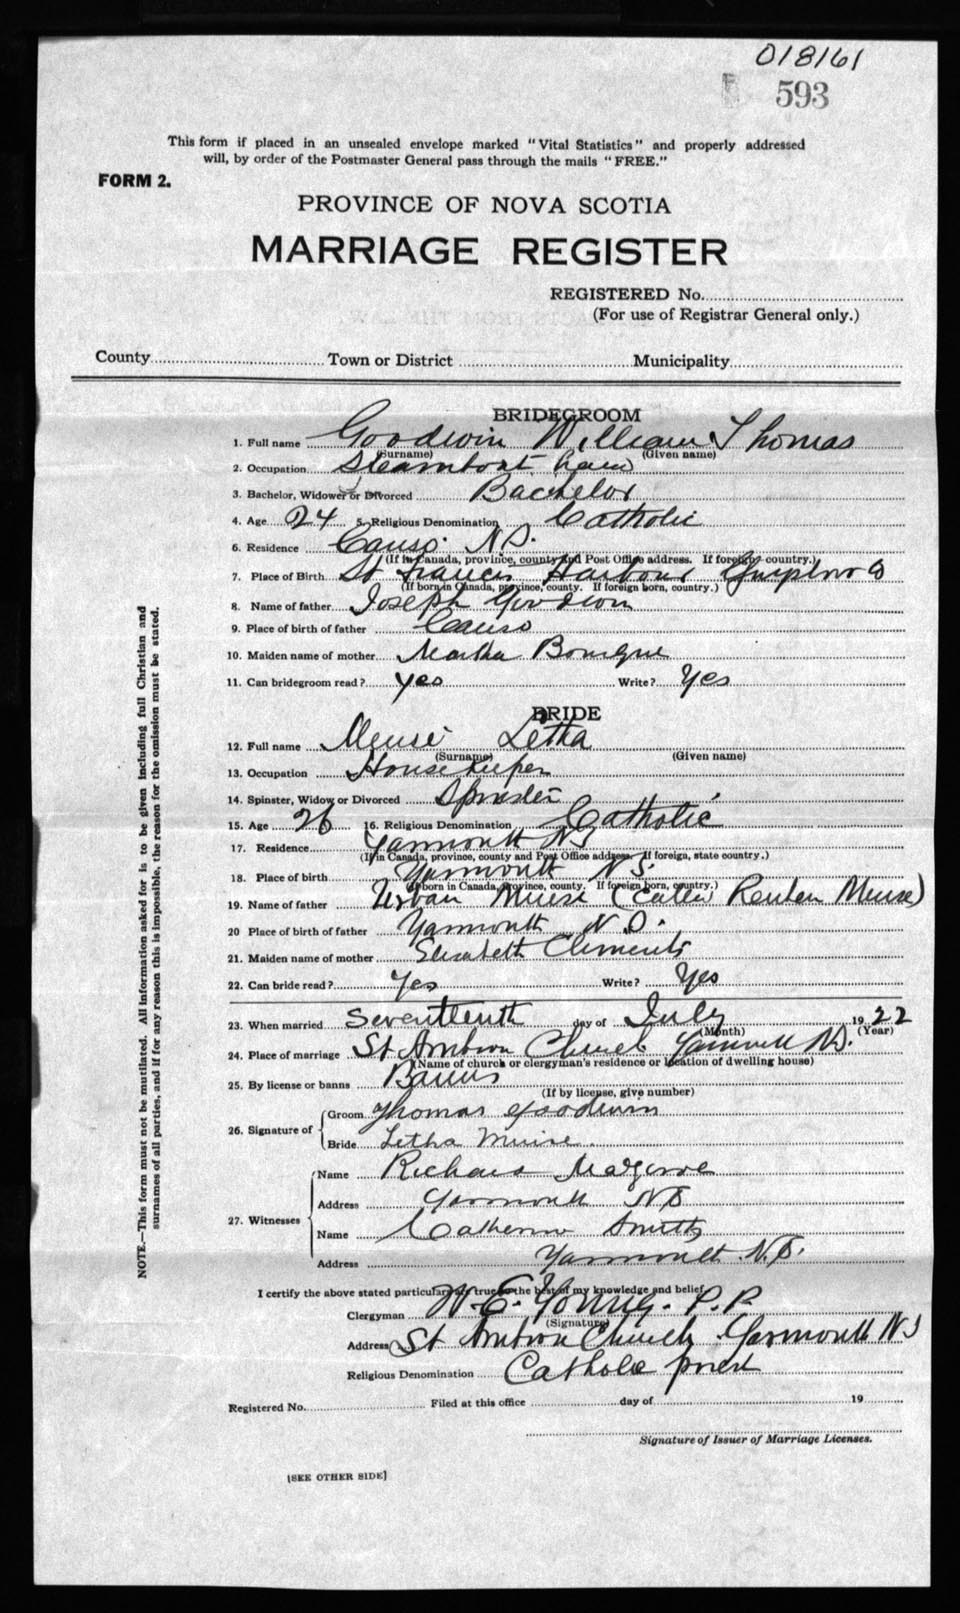 018161
593
This form if placed in an unsealed envelope marked "Vital Statistics" and properly addressed
will, by order of the Postmaster General pass through the mails "FREE."
FORM 2.
PROVINCE OF NOVA SCOTIA
MARRIAGE REGISTER
REGISTERED No.
(For use of Registrar General only.)
County Town or District Municipality
BRIDEGROOM
1. Full name Goodwin William Thomas
(Surname) (Given name)
2. Occupation Steamboat
3. Bachelor, Widower or Divorced Bachelor
4. Age 24 5. Religious Denomination Catholic
6. Residence Canso N.S.
(If in Canada, province, county and Post Office address. If foreign country.)
7. Place of Birth St Francis Harbour Guysboro Co
(If born in Canada, province, county. If foreign born, country.)
8. Name of father Joseph Goodwin
9. Place of birth of father Canso
10. Maiden name of mother Martha Bourque
11. Can bridegroom read? yes Write? Yes
BRIDE
12. Full name Meuse Letha
(Surname) (Given name)
13. Occupation Housekeeper
14. Spinster, Widow or Divorced Spinster
15. Age 26 16. Religious Denomination Catholic
17. Residence Yarmouth NS
(If in Canada, province, county and Post Office address. If foreign, state country.)
18. Place of birth Yarmouth N.S.
(If born in Canada, province, county. If foreign born, country.)
19. Name of father Urban Muise (Called Reuben Muise)
20 Place of birth of father Yarmouth N.S.
21. Maiden name of mother Elizabeth Clements
22. Can bride read? Yes Write? Yes
23. When married Seventeenth day of July 1922
(Month) (Year)
24. Place of marriage St Ambrose Church Yarmouth N.S.
(Name of church or clergyman's residence or location of dwelling house)
25. By license or banns Banns
(If by license, give number)
26. Signature of Groom Thomas Goodwin
Bride Letha Muise
27. Witnesses Name Richard
Address Yarmouth NS
Name Catherine Smith
Address Yarmouth N.S.
I certify the above stated particulars are true to the best of my knowledge and belief.
Clergyman W. E. Young. P.P.
(Signature)
Address St Ambrose Church Yarmouth NS
Religious Denomination Catholic priest
Registered No. Filed at this office day of 19
Signature of Issuer of Marriage Licenses.
[SEE OTHER SIDE]
NOTE.—This form must not be mutilated. All information asked for is to be given including full Christian and
surnames of all parties, and if for any reason this is impossible, the reason for the omission must be stated.